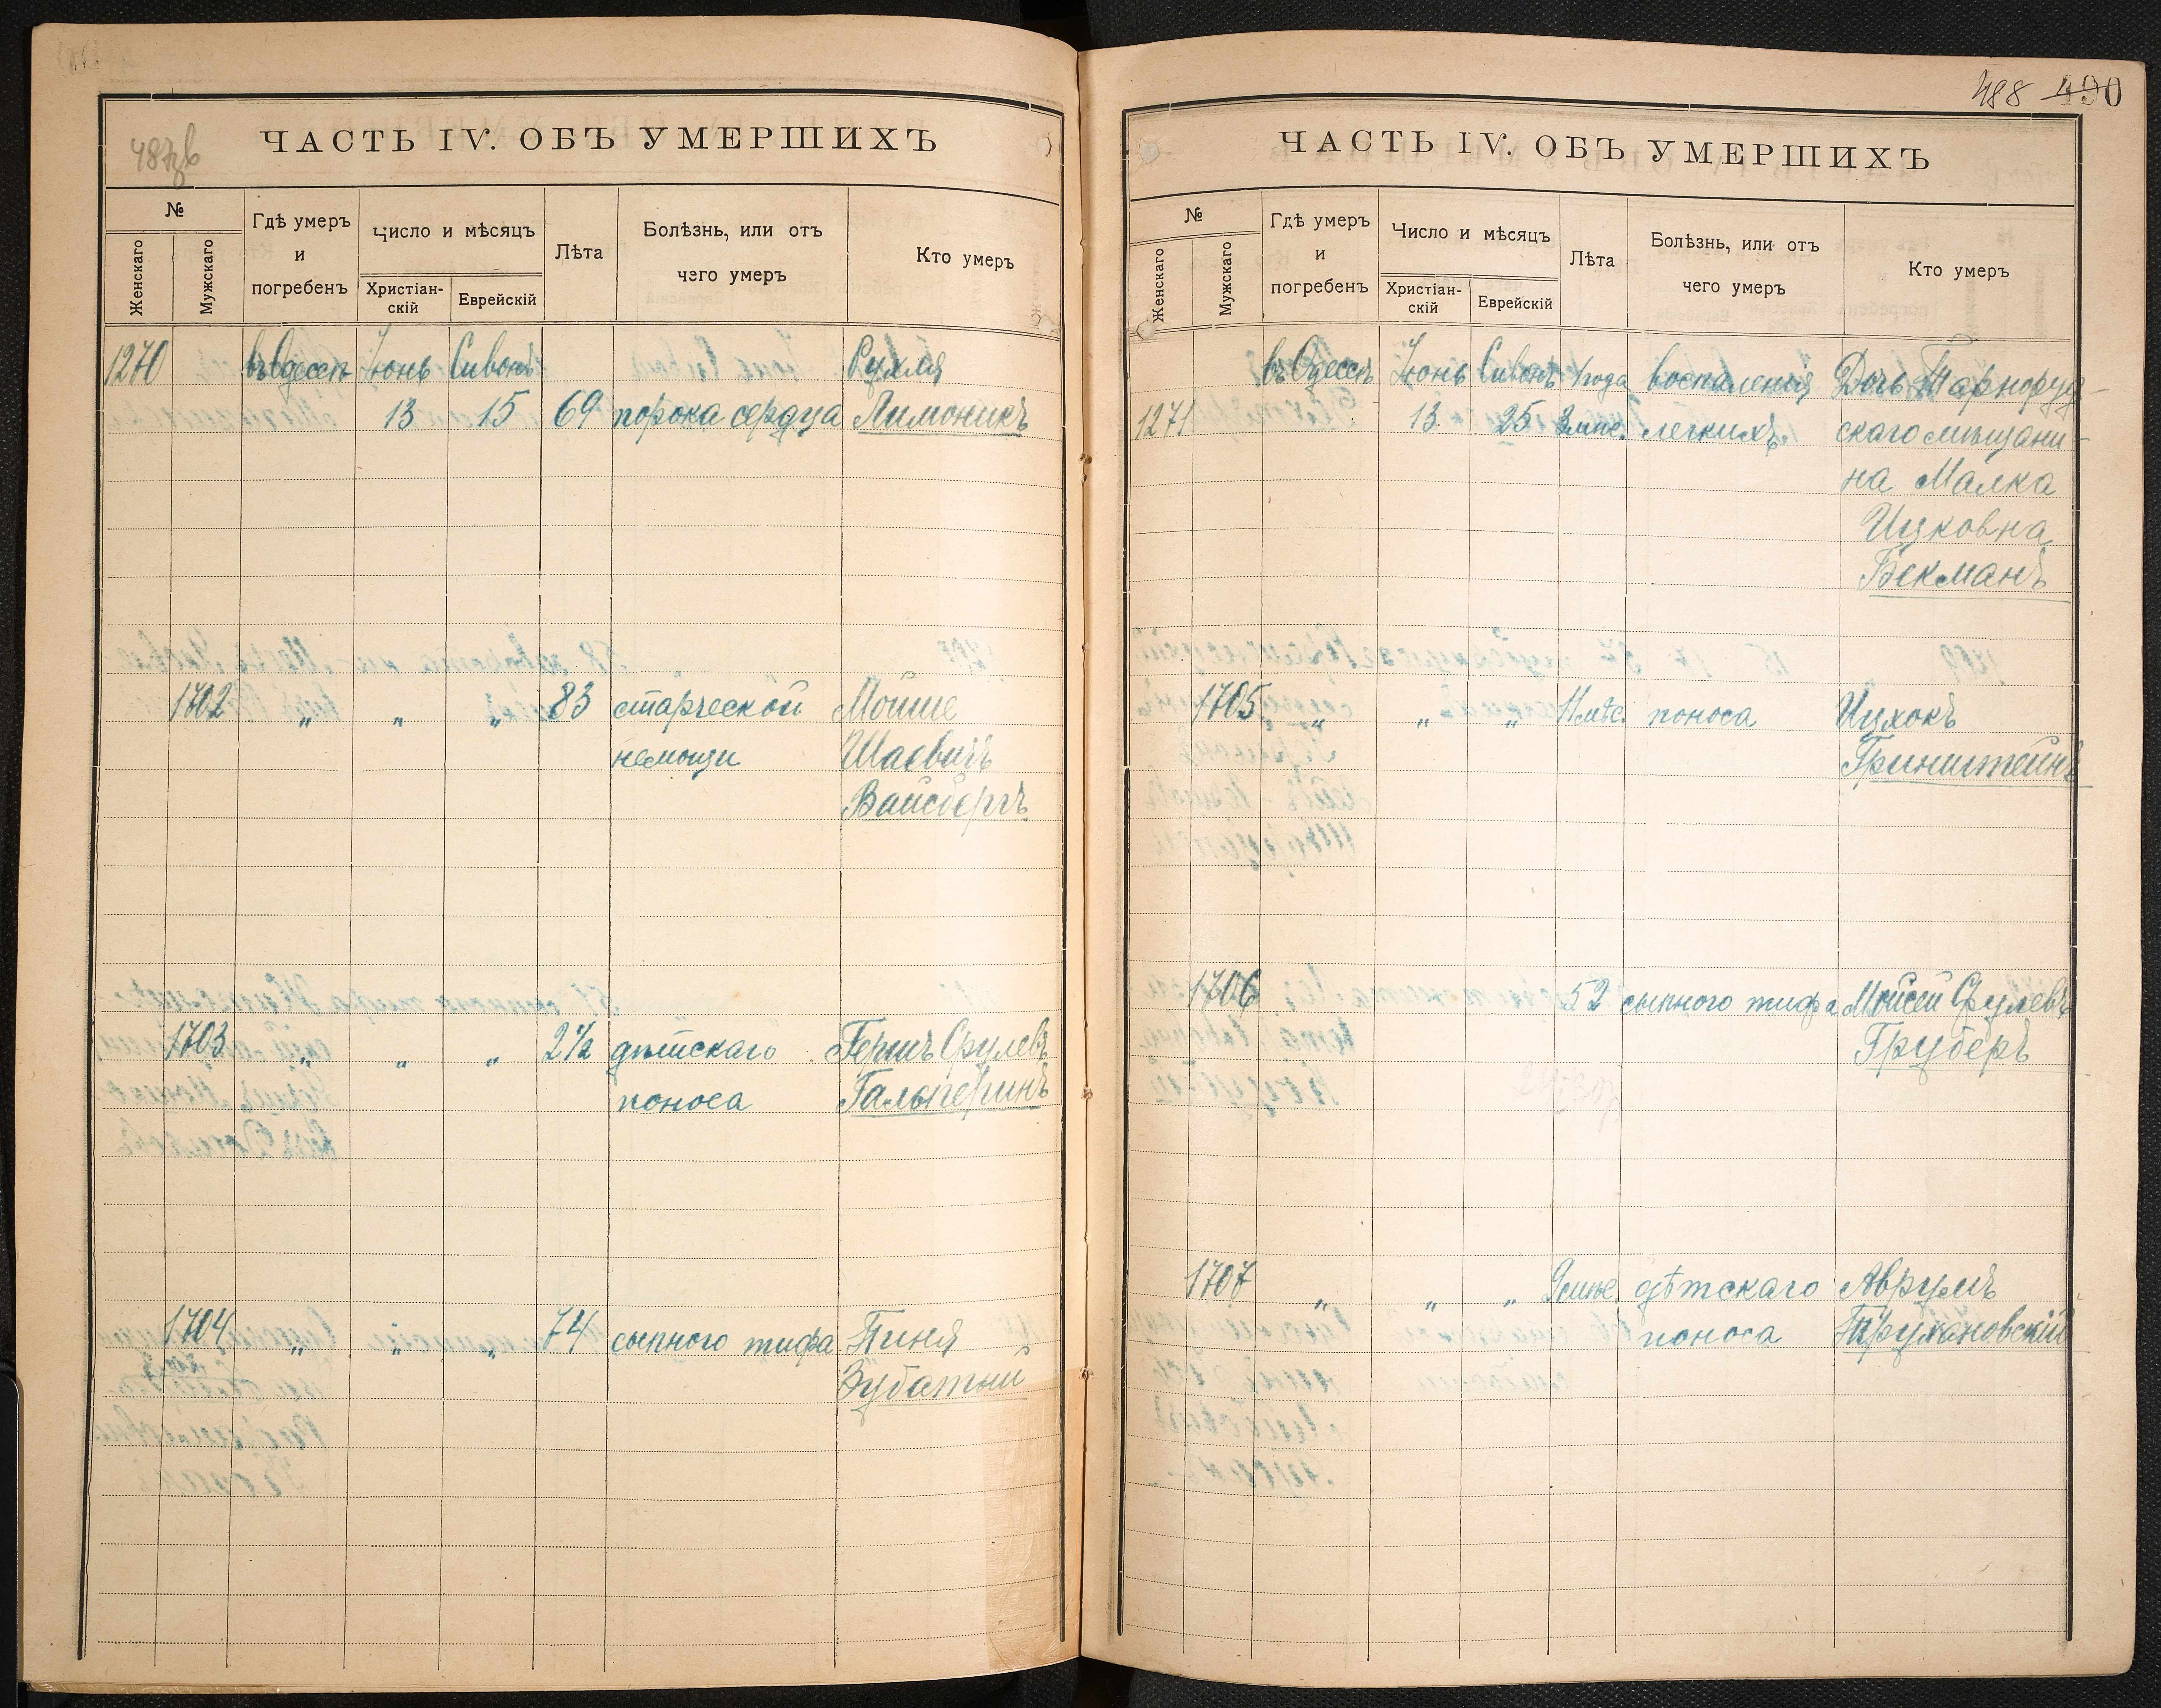 487зв
ЧАСТЬ IV. ОБЪ УМЕРШИХЪ
№
Женскаго
Мужскаго
Гдѣ умеръ
и
погребенъ
Число и мѣсяцъ
Христіан-
скій
Еврейскій
Лѣта
Болѣзнь, или отъ
чего умеръ
Кто умеръ
1270 въ Одессѣ Іюнь Сивонъ Рухля
13 15 69 порока сердца Лимоникъ
1702 „ „ „ 83 старческой Мойше
немощи Шаевичъ
Вайсбергъ
1703 „ „ „ 2½ дѣтскаго Гершъ Срулевъ
поноса Гальперинъ
1704 „ „ „ 74 сыпного тифа Пиня
Зубатый
488 490
ЧАСТЬ IV. ОБЪ УМЕРШИХЪ
№
Женскаго
Мужскаго
Гдѣ умеръ
и
погребенъ
Число и мѣсяцъ
Христіан-
скій
Еврейскій
Лѣта
Болѣзнь, или отъ
чего умеръ
Кто умеръ
въ Одессѣ Іюнь Сивонъ 1 года воспаленія Дочь Тарноруд-
1271 13 25 3 мѣс. легкихъ скаго мѣщани-
на Малка
Ицковна
Бекманъ
1705 „ „ „ 11 мѣс. поноса Ицхокъ
Гринштейнъ
1706 52 сыпного тифа Мойсей Срулевъ
Груберъ
1707 „ „ „ 9 мѣс. дѣтскаго Аврумъ
поноса Трухановскій